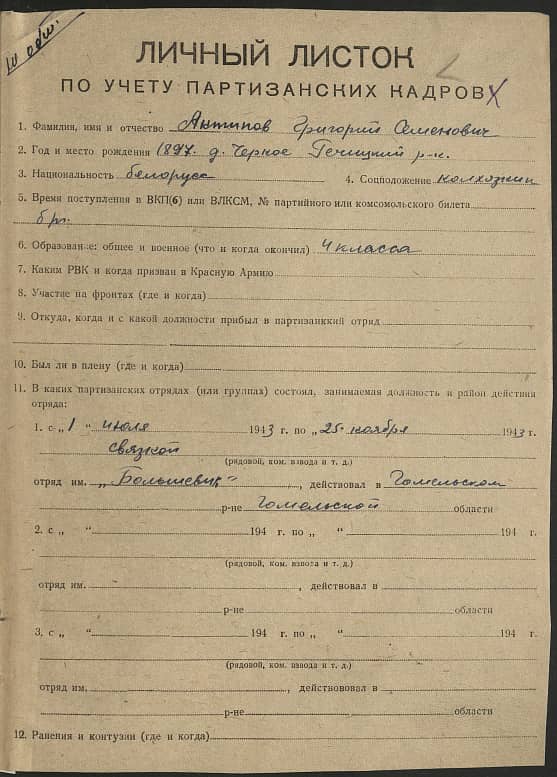 ЛИЧНЫЙ ЛИСТОК
ПО УЧЕТУ ПАРТИЗАНСКИХ КАДРОВ
1. Фамилия, имя и отчество Антипов Григорий Семенович
2. Год и место рождения 1897. д. Черное Речицкий р-н.
3. Национальность белорусс 4. Соцположение колхозник
5. Время поступления в ВКП(б) или ВЛКСМ, № партийного или комсомольского билета
б/п.
6. Образование: общее и военное (что и когда окончил) 4 класса
7. Каким РВК и когда призван в Красную Армию
8. Участие на фронтах (где и когда)
9. Откуда, когда и с какой должности прибыл в партизанккий отряд
10. Был ли в плену (где и когда)
11. В каких партизанских отрядах (или группах) состоял, занимаемая должность и район действия
отряда:
1. с „1“ июля 1943 г. по „25 ноября 1943 г.
связной
(рядовой, ком. взвода и т. д.)
отряд им. „Большевик“, действовал в Гомельском
р-не Гомельской области
2. с „ “ 194 г. по „ “ 194 г.
(рядовой, ком. взвода и т. д.)
отряд им. , действовал в
р-не области
3. с „ “ 194 г. по „ “ 194 г.
(рядовой, ком. взвода и т. д.)
отряд им. , действововал в
р-не области
12. Ранения и контузии (где и когда)